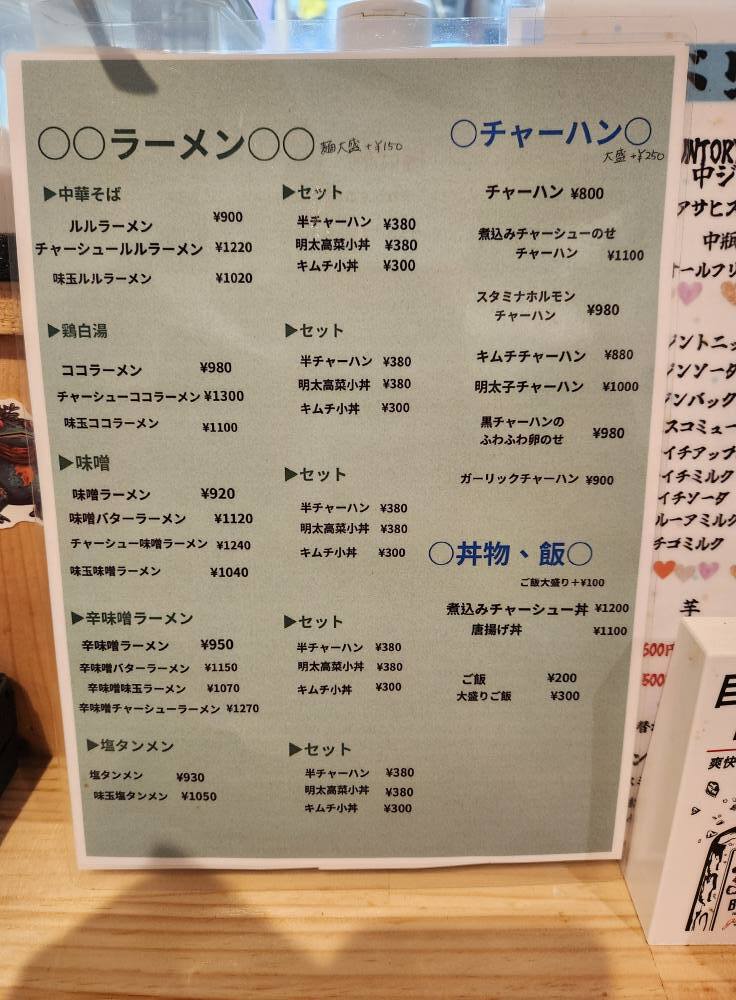 ○○ラーメン○○ 麺大盛+¥150
▶中華そば
ルルラーメン ¥900
チャーシュールルラーメン ¥1220
味玉ルルラーメン ¥1020
▶セット
半チャーハン ¥380
明太高菜小丼 ¥380
キムチ小丼 ¥300
▶鶏白湯
ココラーメン ¥980
チャーシューココラーメン ¥1300
味玉ココラーメン ¥1100
▶セット
半チャーハン ¥380
明太高菜小丼 ¥380
キムチ小丼 ¥300
▶味噌
味噌ラーメン ¥920
味噌バターラーメン ¥1120
チャーシュー味噌ラーメン ¥1240
味玉味噌ラーメン ¥1040
▶セット
半チャーハン ¥380
明太高菜小丼 ¥380
キムチ小丼 ¥300
▶辛味噌ラーメン
辛味噌ラーメン ¥950
辛味噌バターラーメン ¥1150
辛味噌味玉ラーメン ¥1070
辛味噌チャーシューラーメン ¥1270
▶セット
半チャーハン ¥380
明太高菜小丼 ¥380
キムチ小丼 ¥300
▶塩タンメン
塩タンメン ¥930
味玉塩タンメン ¥1050
▶セット
半チャーハン ¥380
明太高菜小丼 ¥380
キムチ小丼 ¥300
○チャーハン○
大盛+¥250
チャーハン ¥800
煮込みチャーシューのせ
チャーハン ¥1100
スタミナホルモン
チャーハン ¥980
キムチチャーハン ¥880
明太子チャーハン ¥1000
黒チャーハンの
ふわふわ卵のせ ¥980
ガーリックチャーハン ¥900
○丼物、飯○
ご飯大盛り+¥100
煮込みチャーシュー丼 ¥1200
唐揚げ丼 ¥1100
ご飯 ¥200
大盛りご飯 ¥300
中ジ
アサヒス
中瓶
オールフリ
ジントニッ
ジンソーダ
ジンバック
スコミュー
イチアップ
イチミルク
イチソーダ
ルーアミルク
チゴミルク
芋
500円
500
爽快